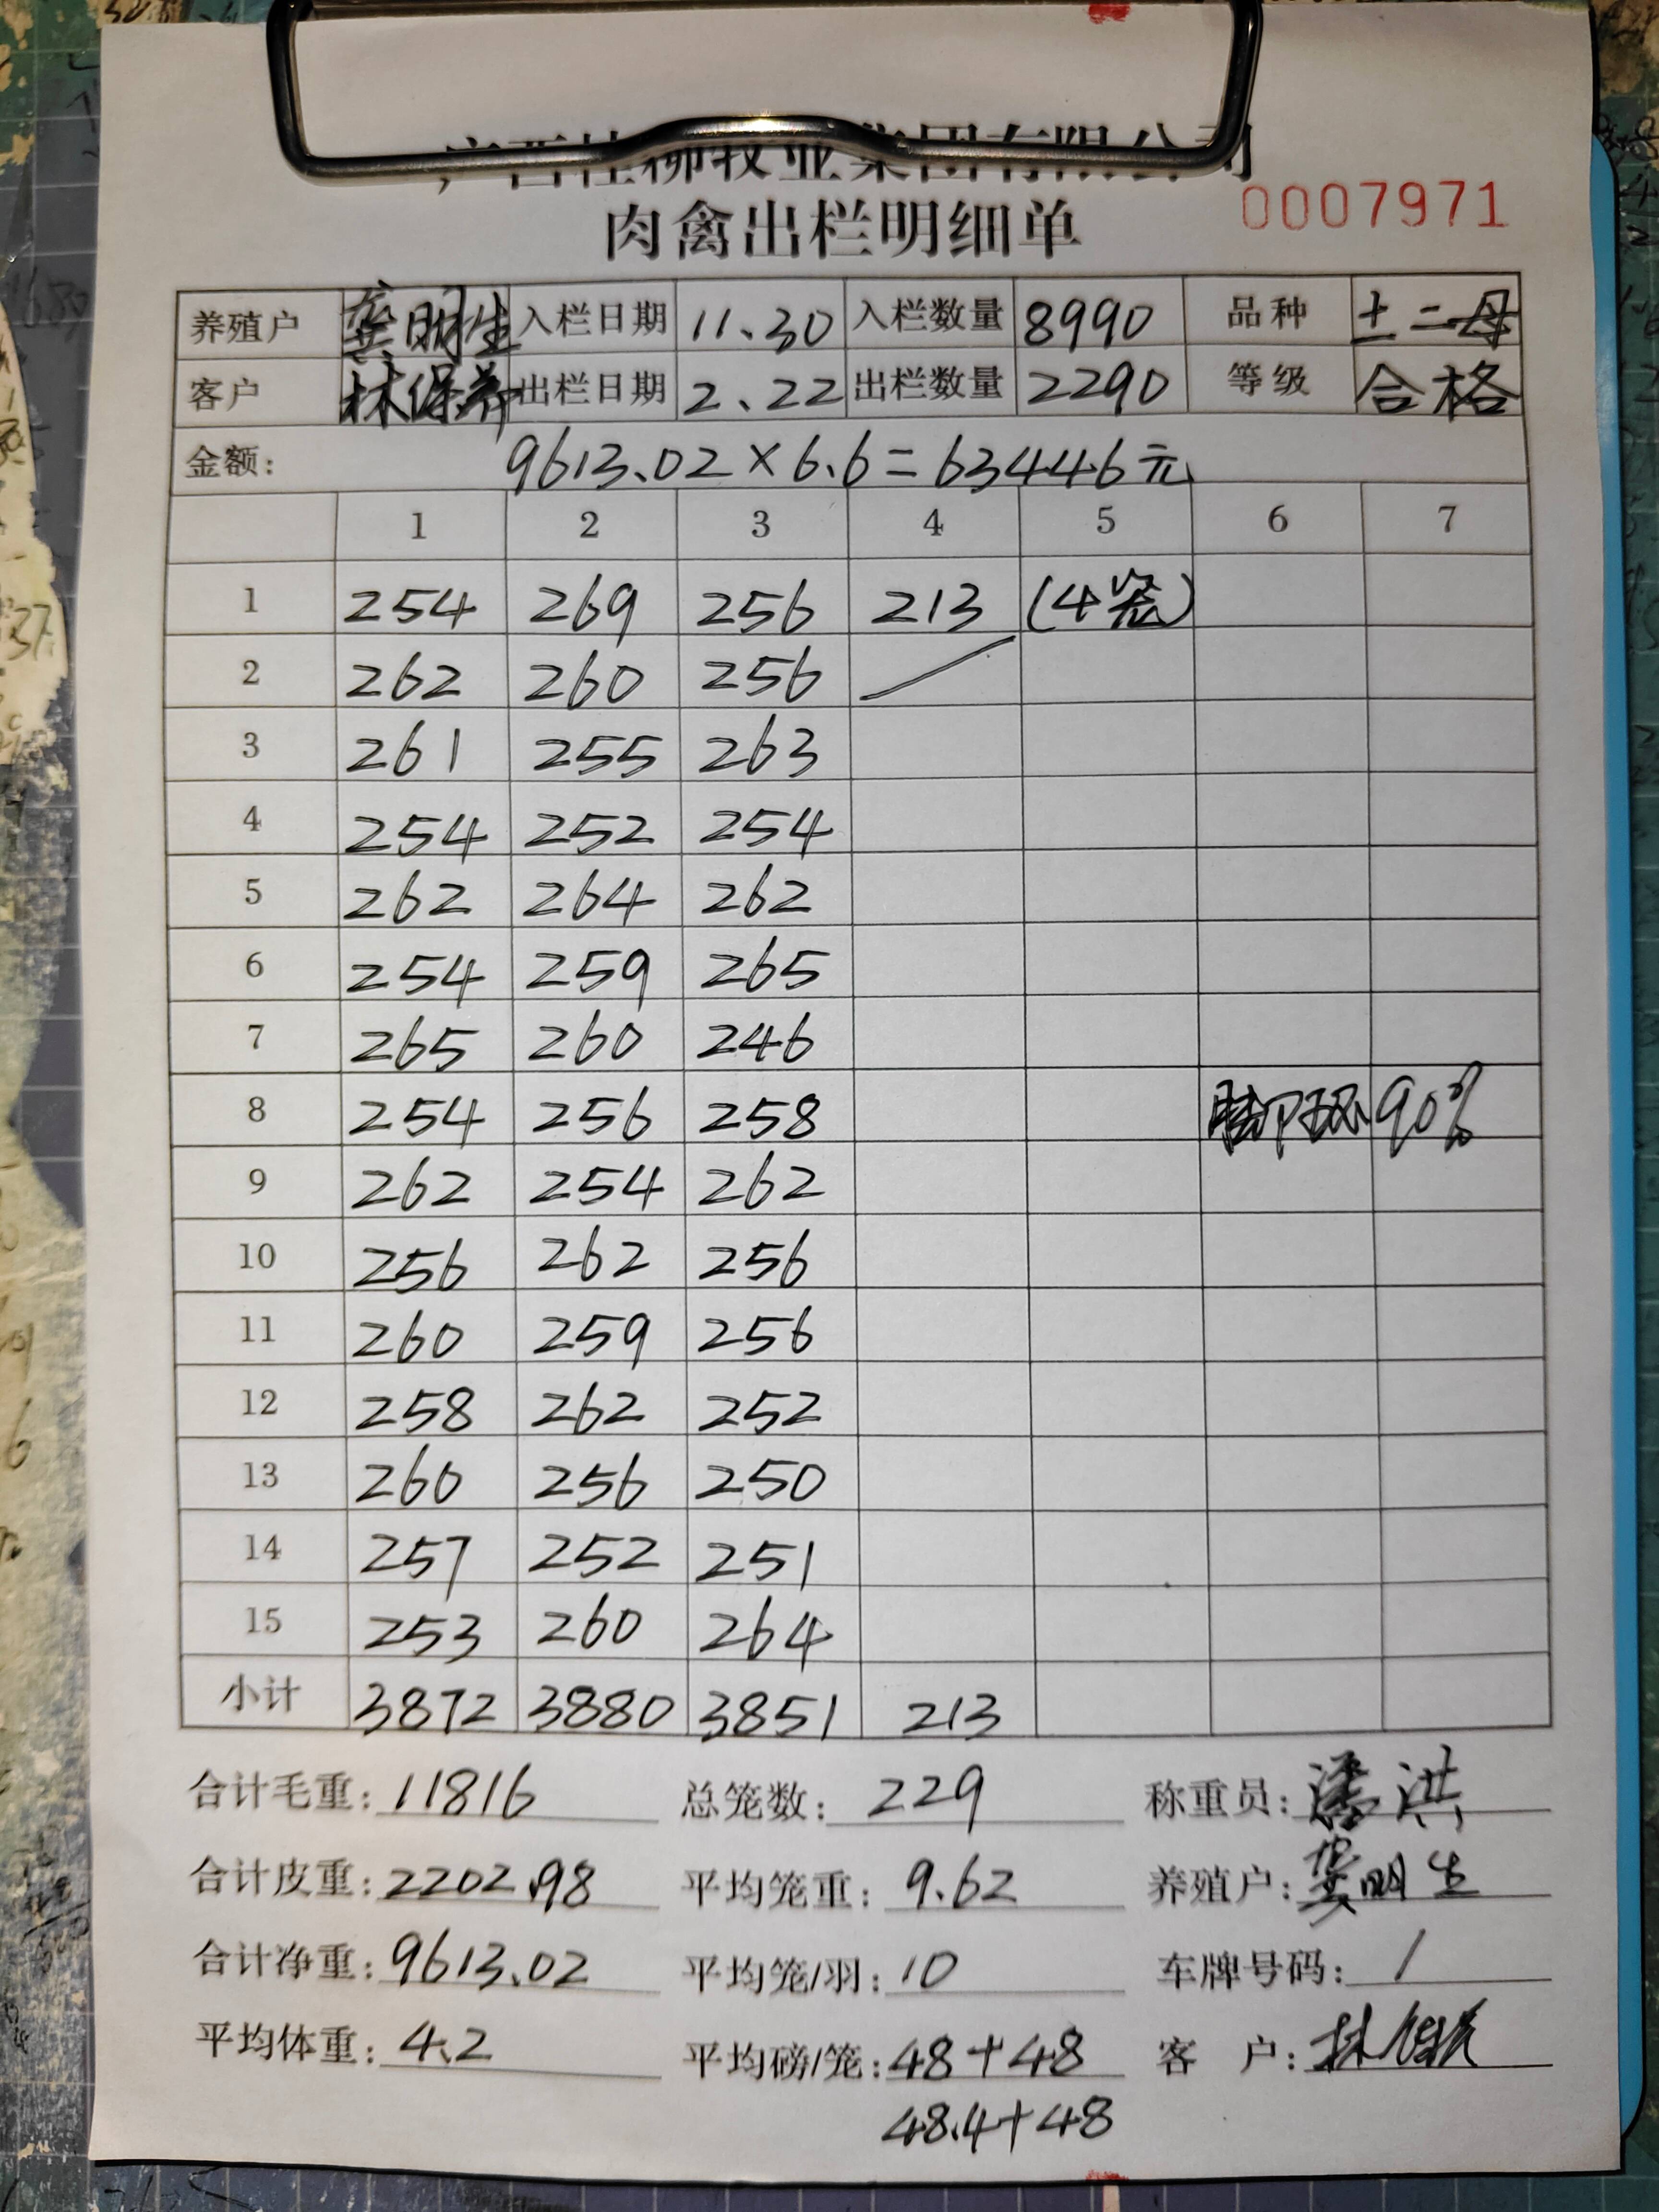 广西桂柳牧业集团有限公司
肉禽出栏明细单
0007971
养殖户 龚明生 入栏日期 11.30 入栏数量 8990 品种 土二母
客户 林保养 出栏日期 2.22 出栏数量 2290 等级 合格
金额: 9613.02×6.6=63446元
1 2 3 4 5 6 7
1 254 269 256 213 (4笼)
2 262 260 256
3 261 255 263
4 254 252 254
5 262 264 262
6 254 259 265
7 265 260 246
8 254 256 258 脚环 90%
9 262 254 262
10 256 262 256
11 260 259 256
12 258 262 252
13 260 256 250
14 257 252 251
15 253 260 264
小计 3872 3880 3851 213
合计毛重: 11816 总笼数: 229 称重员: 潘洪
合计皮重: 2202.98 平均笼重: 9.62 养殖户: 龚明生
合计净重: 9613.02 平均笼/羽: 10 车牌号码: /
平均体重: 4.2 平均磅/笼: 48+48 客 户: 林
48.4+48